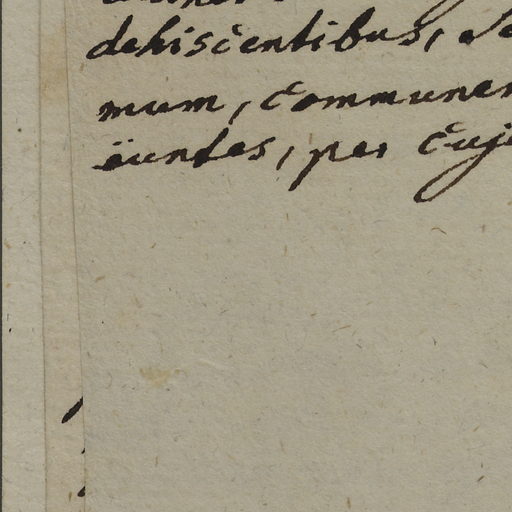 dehiscentibus, se
mum, communem
ëuntes, per cuj